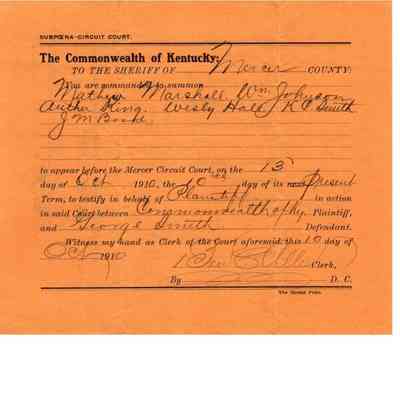 SUBPOENA-CIRCUIT COURT.
The Commonwealth of Kentucky:
TO THE SHERIFF OF Mercer COUNTY:
You are commanded to summon
Mathew Marshall, Wm Johnson
Author King, Wesly Hale, K C Smith
J M
to appear before the Mercer Circuit Court, on the 13
day of Oct 1910, the 10th day of its present
Term, to testify in behalf of Plaintiff in action
in said Court between Plaintiff,
and George Smith Defendant.
Witness my hand as Clerk of the Court aforesaid, this 10 day of
Oct 1910
Clerk,
By D. C.